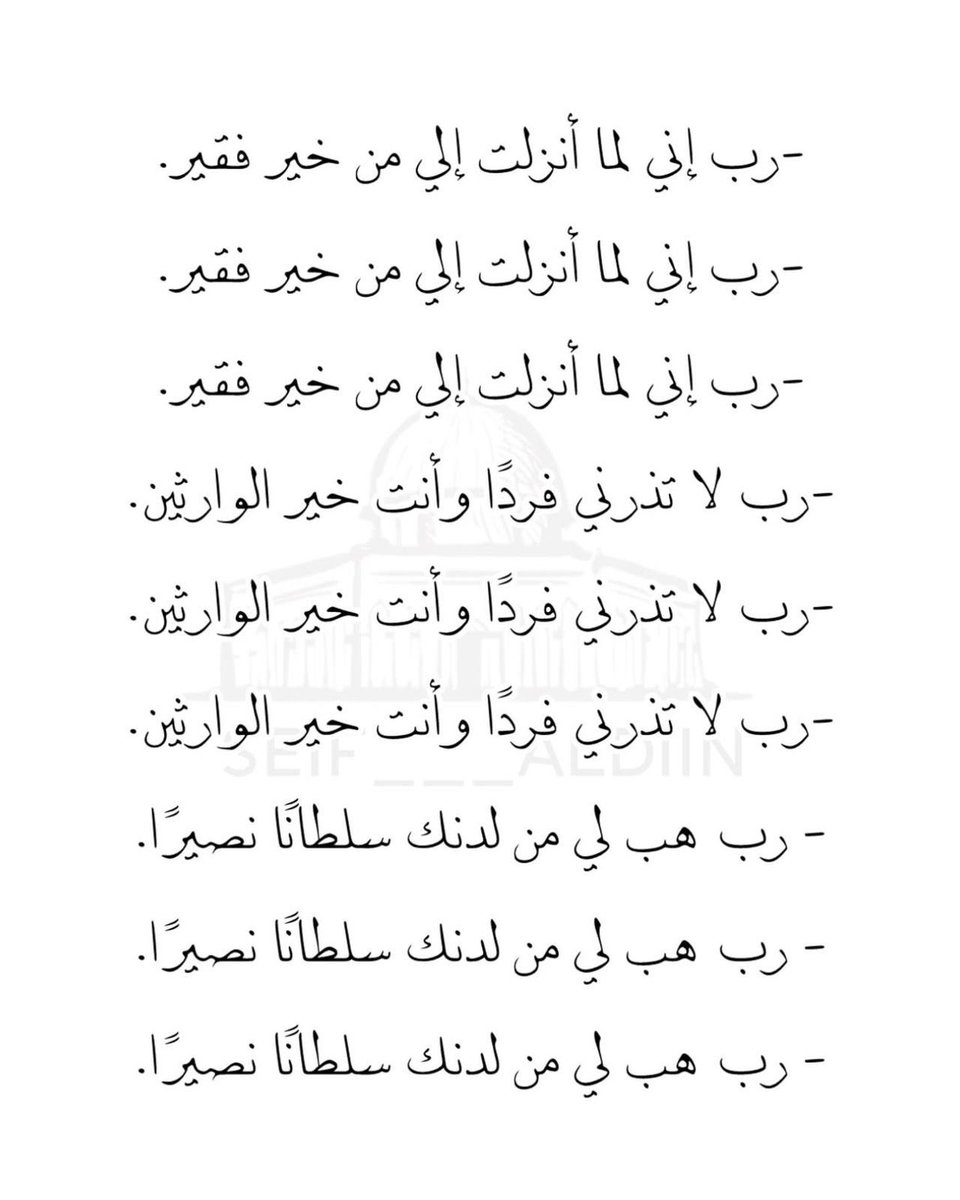 -رب إني لما أنزلت إلي من خير فقير.
-رب إني لما أنزلت إلي من خير فقير.
-رب إني لما أنزلت إلي من خير فقير.
-رب لا تذرني فردًا وأنت خير الوارثين.
-رب لا تذرني فردًا وأنت خير الوارثين.
-رب لا تذرني فردًا وأنت خير الوارثين.
SEIF___ALDIIN
- رب هب لي من لدنك سلطانًا نصيرًا.
- رب هب لي من لدنك سلطانًا نصيرًا.
- رب هب لي من لدنك سلطانًا نصيرًا.